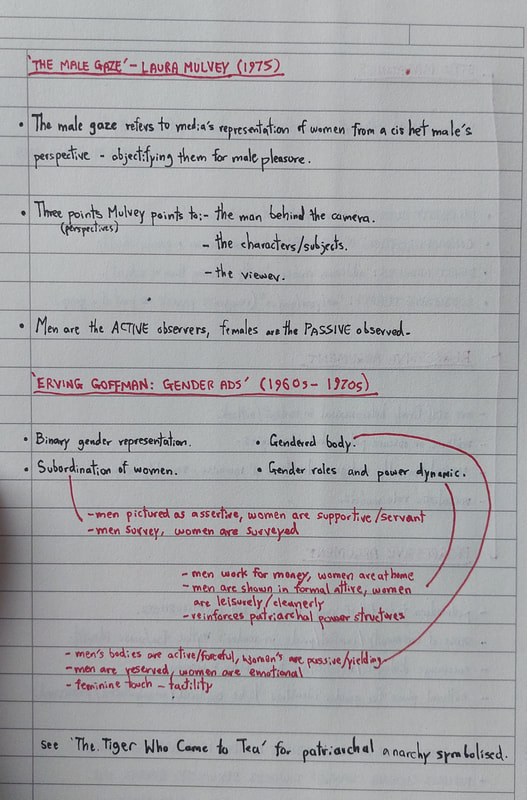 'THE MALE GAZE' – LAURA MULVEY (1975)
• The male gaze refers to media's representation of women from a cis het male's
perspective – objectifying them for male pleasure.
• Three points Mulvey points to:- the man behind the camera.
(perspectives)
- the characters/subjects.
- the viewer.
• Men are the ACTIVE observers, females are the PASSIVE observed.
'ERVING GOFFMAN: GENDER ADS' (1960s – 1970s)
• Binary gender representation.
• Gendered body.
• Subordination of women.
• Gender roles and power dynamic.
- men pictured as assertive, women are supportive/servant
- men survey, women are surveyed
- men work for money, women are at home
- men are shown in formal attire, women
are leisurely/cleanerly
- reinforces patriarchal power structures
- men's bodies are active/forceful, women's are passive/yielding
- men are reserved, women are emotional
- feminine touch – tactility
see 'The Tiger Who Came to Tea' for patriarchal anarchy symbolised.